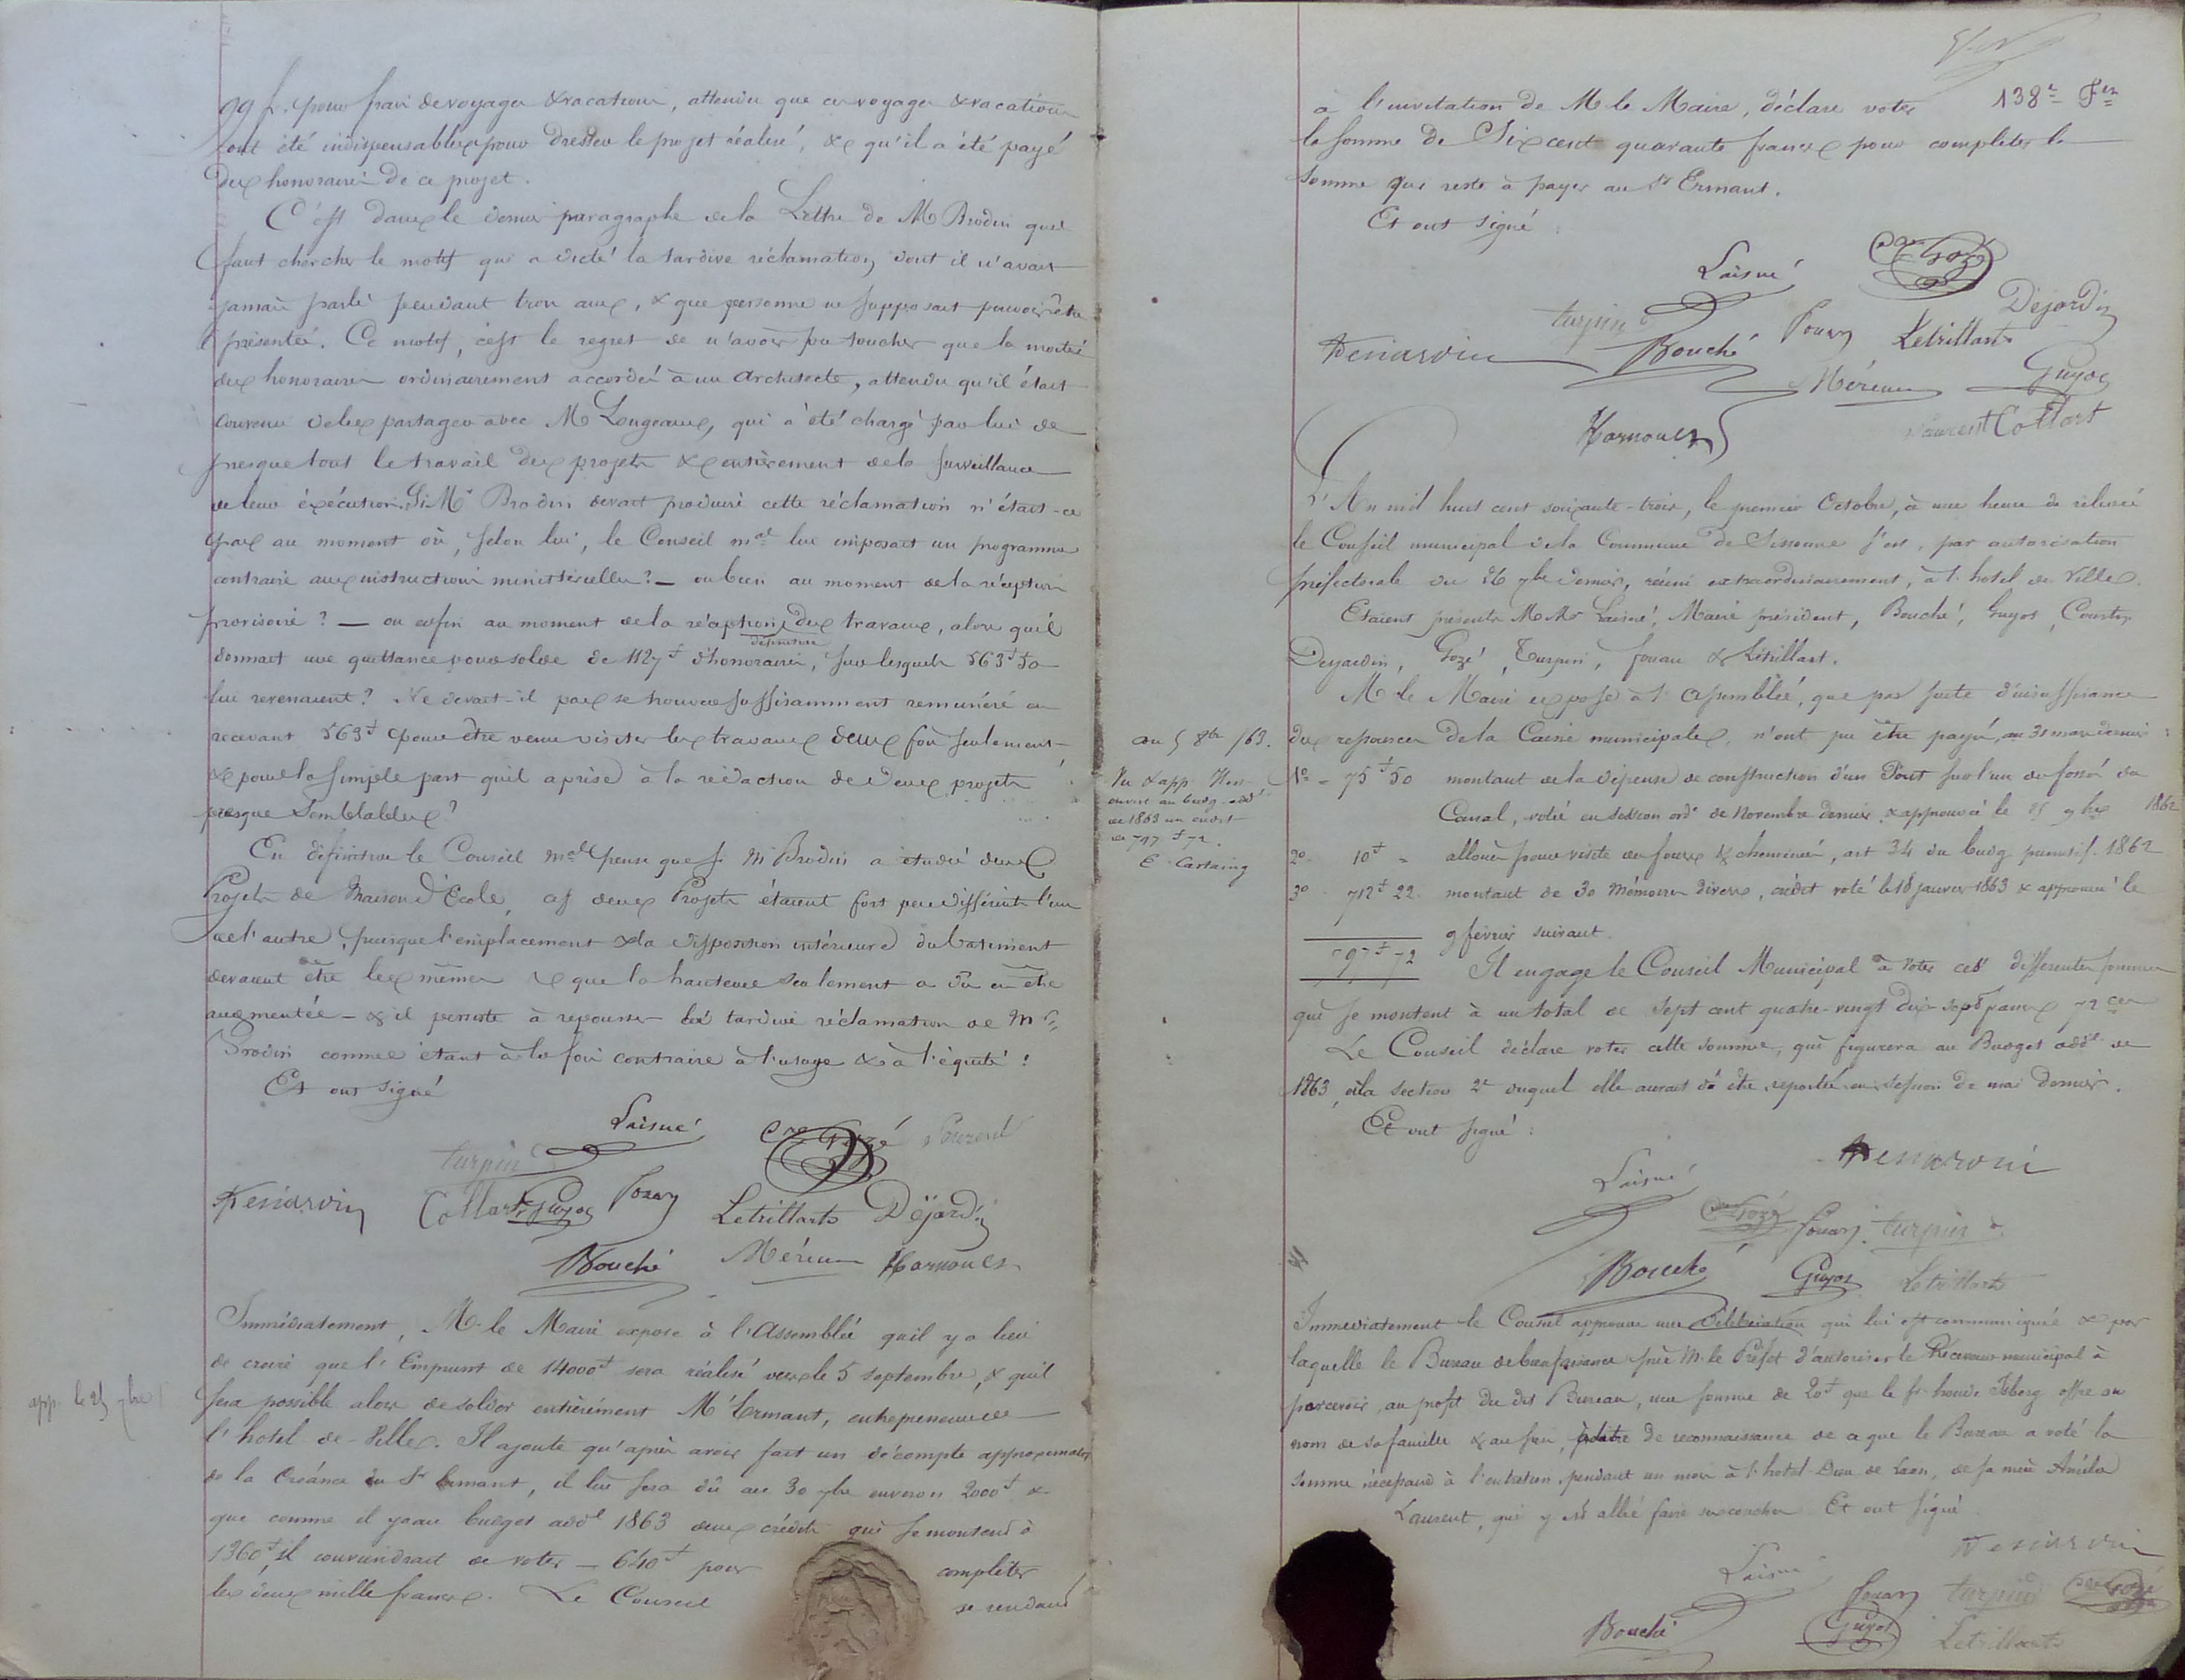 99 f. pour frais de voyages & vacations, attendu que ces voyages & vacations
ont été indispensables pour dresser le projet réalisé, & qu'il a été payé
des honoraires de ce projet.
C'est dans le dernier paragraphe de la Lettre de M Brodin qu'il
faut chercher le motif qui a dicté la tardive réclamation dont il n'avait
jamais parlé pendant trois ans, & que personne ne supposait pouvoir être
présentée. Ce motif, c'est le regret de n'avoir pu toucher que la moitié
des honoraires ordinairement accordés à un Architecte, attendu qu'il était
convenu de les partager avec M Longeaux, qui a été chargé par lui de
presque tout le travail des projets & entièrement de la surveillance
de leur éxécution. Si Mr Brodin devait produire cette réclamation n'était-ce
pas au moment où, selon lui, le Conseil mal lui imposait un programme
contraire aux instructions ministérielles? — ou bien au moment de la réception
provisoire? — ou enfin au moment de la réception définitive des travaux, alors qu'il
donnait une quittance pour solde de 1127f d'honoraires, sur lesquels 563f 50
lui revenaient? Ne devait-il pas se trouver suffisamment remunéré en
recevant 563f pour être venu visiter les travaux deux fois seulement
& pour la simple part qu'il a prise à la rédaction de deux projets
presque semblables?
En définitive le Conseil mal pense que si Mr Brodin a étudié deux
Projets de Maison d'Ecole, ces deux Projets étaient fort peu différents l'un
de l'autre, puisque l'emplacement & la disposition intérieure du batiment
devaient être les mêmes & que la hauteur seulement a dû en être
augmentée — & il persiste à repousser la tardive réclamation de Mr
Brodin comme étant à la fois contraire à l'usage & à l'équité!
Et ont signé
Laisné Gozé Laurent
turpin
Denardin Collart Guyot Fouan Letrillart Déjardin
Bouché Mérieux Harnouls
Immédiatement, M. le Maire expose à l'Assemblée qu'il y a lieu
de croire que l'Emprunt de 14000f sera réalisé vers le 5 septembre, & qu'il
app. le 25 7bre
sera possible alors de solder entièrement Mr Ermant, entrepreneur de
l'hotel de Ville. Il ajoute qu'après avoir fait un décompte approximatif
de la Créance du Sr Ermant, il lui sera dû au 30 7bre environ 2000f &
que comme il y a au budget addel 1863 deux crédits qui se montent à
1360f il conviendrait de voter — 640f pour completer
les deux mille francs. Le Conseil se rendant
138e Fet
à l'invitation de M le Maire, déclare voter
la somme de Six cent quarante francs pour completer la
somme qui reste à payer au Sr Ermant.
Et ont signé :
Laisné Gozé
turpin Fouan Déjardin
Denardin Bouché Letrillart
Mérieux Guyot
Harnouls Laurent Collart
L'An mil huit cent soixante-trois, le premier Octobre, à une heure de relevée
le Conseil municipal de la Commune de Sissonne s'est, par autorisation
préfectorale du 26 7bre dernier, réuni extraordinairement, à l'hotel de Ville.
Etaient présents M Mrs Laisné, Maire président, Bouché, Guyot, Courtin
Dejardin, Gozé, Turpin, Fouan & Létrillart.
M le Maire expose à l'Assemblée, que par suite d'insuffisance
des ressources de la Caisse municipale, n'ont pu être payés, au 31 mars dernier :
au 5 8bre 1863.
Vu & app.
ouvre au budg. addl
de 1863 un crédit
de 797f 72
E. Castaing
1o - 75f 50 montant de la dépense de construction d'un Pont sur l'un des fossés du
Canal, votée en session orde de Novembre dernier & approuvée le 25 9bre 1862
2o - 10f - alloués pour visite des fours & cheminées, art 34 du budg primitif. 1862
3o - 712f 22 montant de 30 Mémoires divers, crédit voté le 18 janvier 1863 & approuvé le
9 février suivant.
797f 72 Il engage le Conseil Municipal à voter ces différentes sommes
qui se montent à un total de Sept cent quatre-vingt dix-sept francs 72 ces
Le Conseil déclare voter cette somme, qui figurera au Budget addel de
1863, à la section 2e duquel elle aurait dû être reportée en session de mai dernier.
Et ont signé :
Denardin
Laisné
Gozé Fouan turpin
Bouché Guyot Letrillart
Immédiatement le Conseil approuve une délibération qui lui est communiquée & par
laquelle le Bureau de bienfaisance prie M. le Préfet d'autoriser le Receveur municipal à
percevoir, au profit du dit Bureau, une somme de 20f que le Sr Isberg offre au
nom de sa famille & au sien, à titre de reconnaissance de ce que le Bureau a voté la
somme nécessaire à l'entretien pendant un mois à l'hotel-Dieu de Laon, de sa nièce
Laurent, qui y est allée faire ses couches. Et ont signé
Denardin
Laisné
Fouan turpin Gozé
Bouché Guyot Letrillart